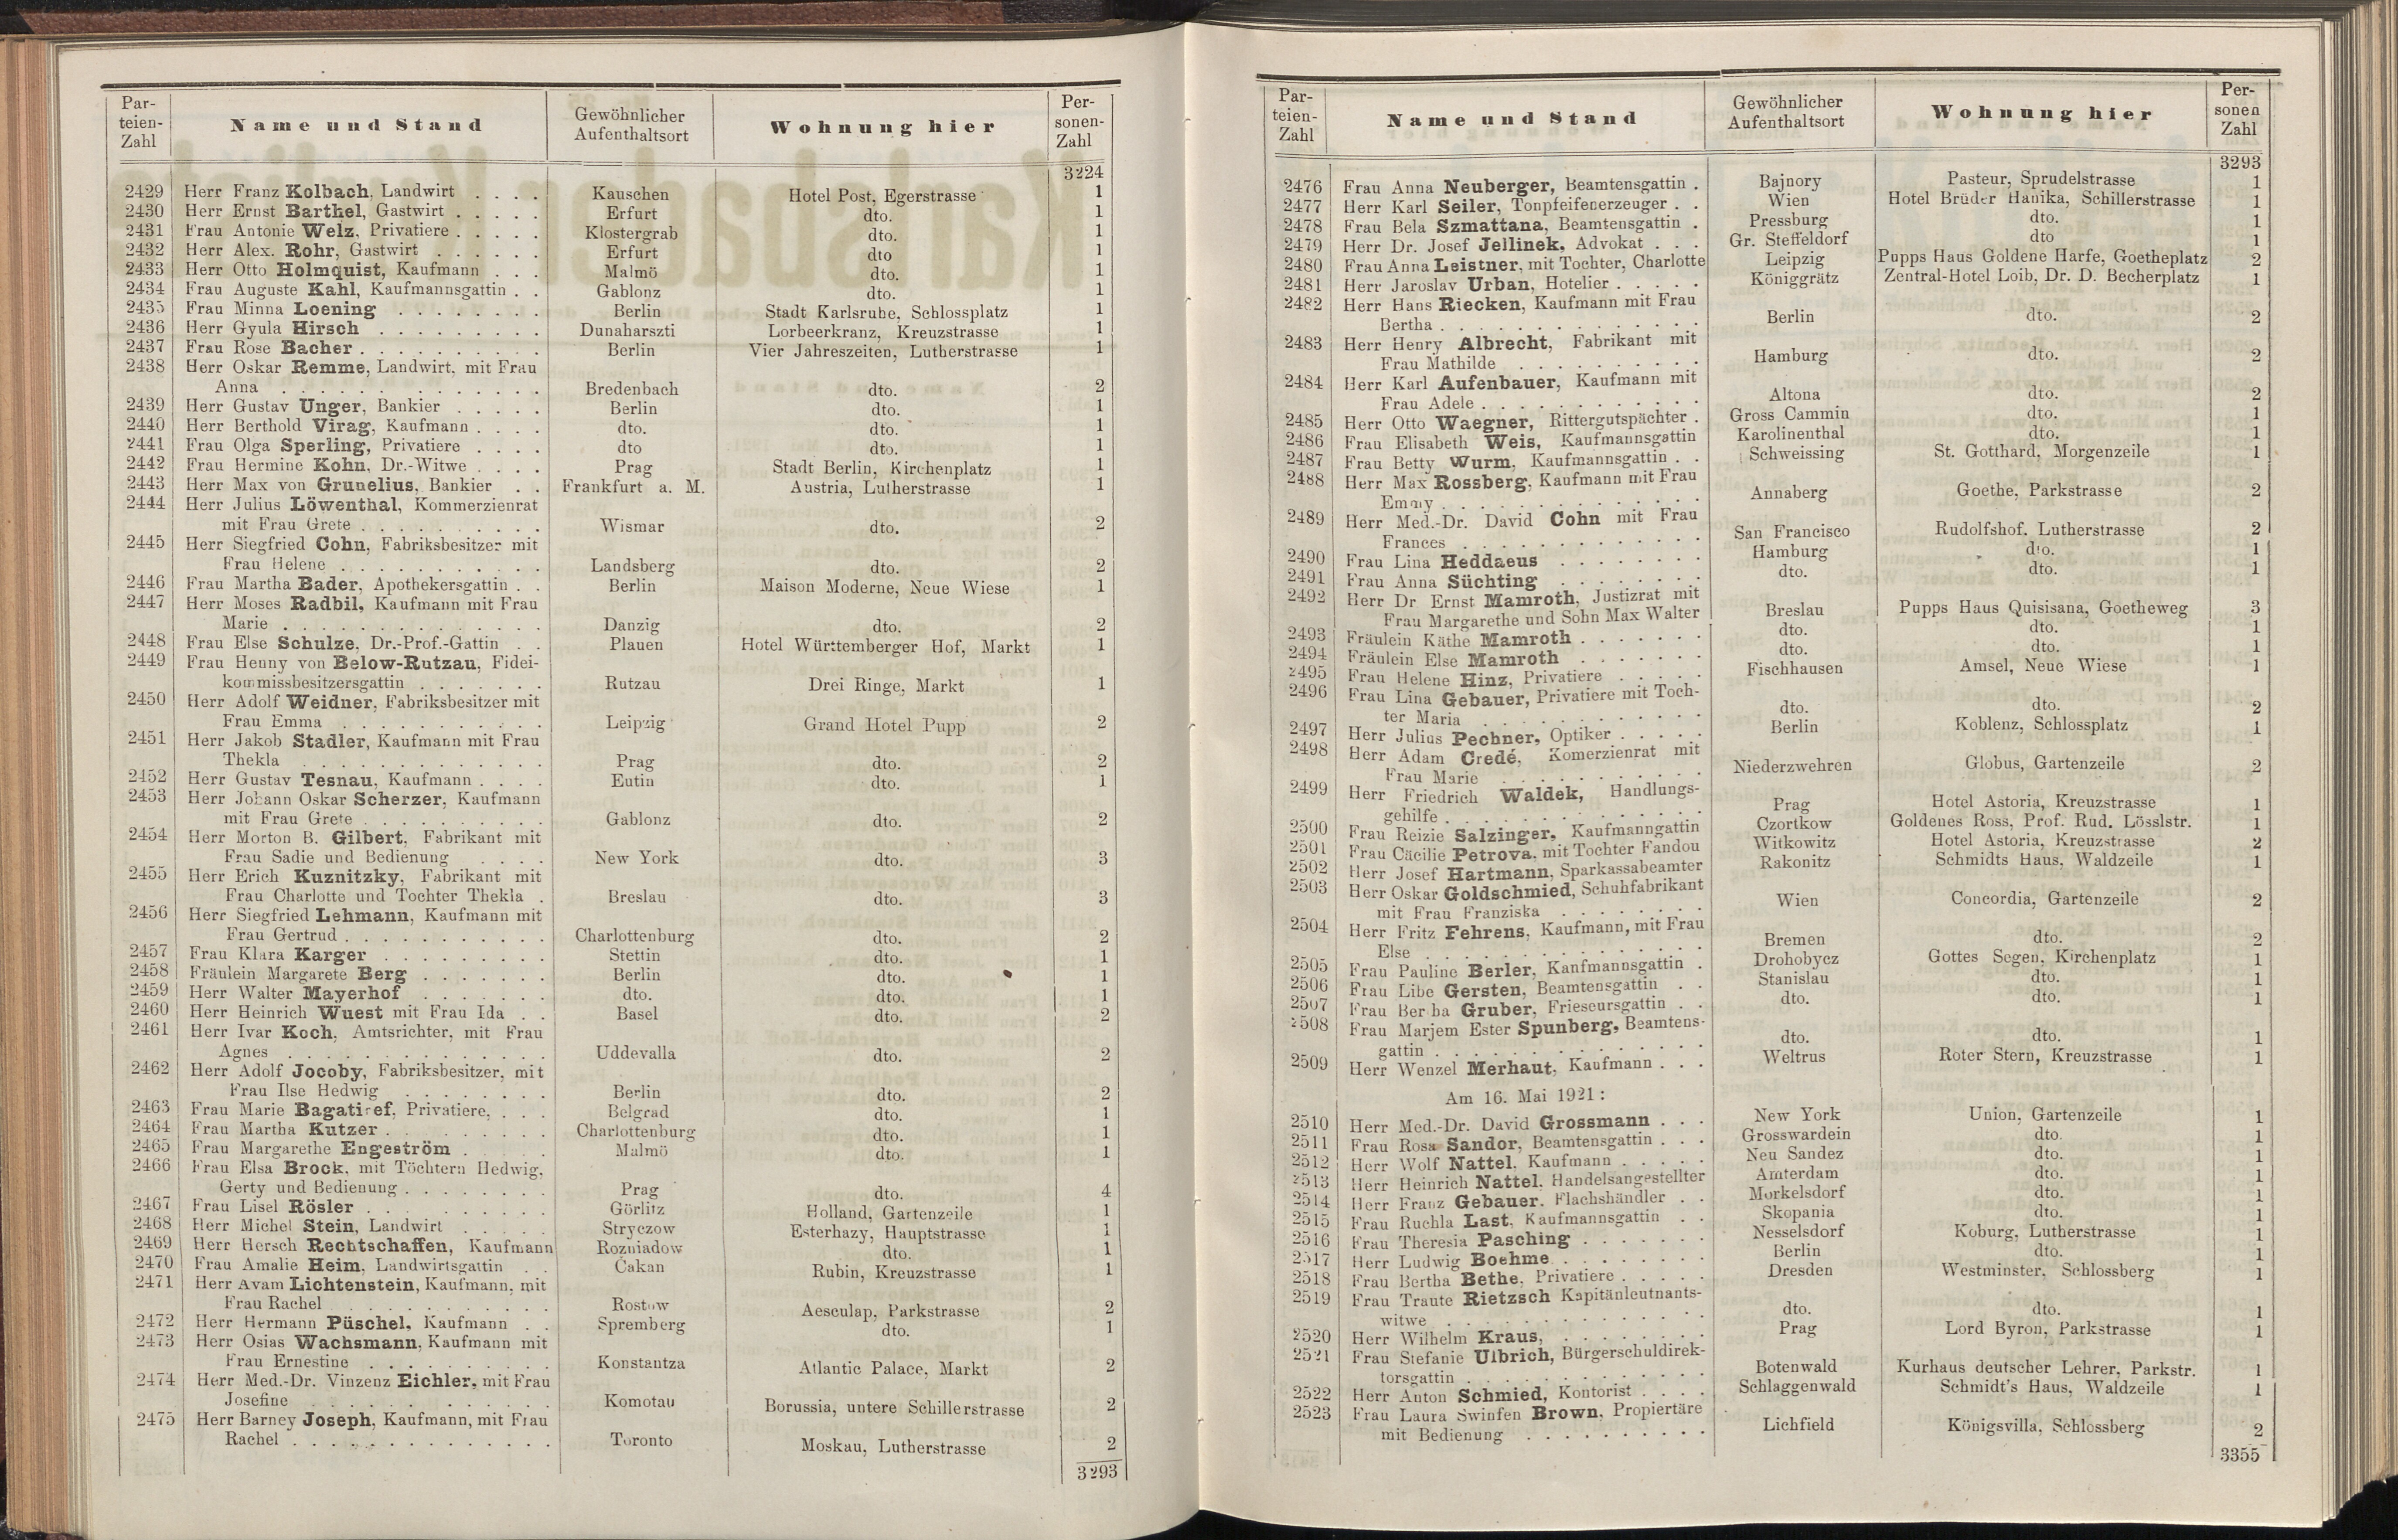 Par-
teien-
Zahl
Name und Stand
Gewöhnlicher
Aufenthaltsort
Wohnung hier
Per-
sonen-
Zahl
3224
2429 Herr Franz Kolbach, Landwirt . . . . Kauschen Hotel Post, Egerstrasse 1
2430 Herr Ernst Barthel, Gastwirt . . . . . Erfurt dto. 1
2431 Frau Antonie Welz, Privatiere . . . . . Klostergrab dto. 1
2432 Herr Alex. Rohr, Gastwirt . . . . . . Erfurt dto 1
2433 Herr Otto Holmquist, Kaufmann . . . Malmö dto. 1
2434 Frau Auguste Kahl, Kaufmannsgattin . . Gablonz dto. 1
2435 Frau Minna Loening . . . . . . . . Berlin Stadt Karlsruhe, Schlossplatz 1
2436 Herr Gyula Hirsch . . . . . . . . . Dunaharszti Lorbeerkranz, Kreuzstrasse 1
2437 Frau Rose Bacher . . . . . . . . . . Berlin Vier Jahreszeiten, Lutherstrasse 1
2438 Herr Oskar Remme, Landwirt, mit Frau
Anna . . . . . . . . . . . . . Bredenbach dto. 2
2439 Herr Gustav Unger, Bankier . . . . . Berlin dto. 1
2440 Herr Berthold Virag, Kaufmann . . . . dto. dto. 1
2441 Frau Olga Sperling, Privatiere . . . . dto dto. 1
2442 Frau Hermine Kohn, Dr.-Witwe . . . . Prag Stadt Berlin, Kirchenplatz 1
2443 Herr Max von Grunelius, Bankier . . Frankfurt a. M. Austria, Lutherstrasse 1
2444 Herr Julius Löwenthal, Kommerzienrat
mit Frau Grete . . . . . . . . . . Wismar dto. 2
2445 Herr Siegfried Cohn, Fabriksbesitzer mit
Frau Helene . . . . . . . . . . . Landsberg dto. 2
2446 Frau Martha Bader, Apothekersgattin . . Berlin Maison Moderne, Neue Wiese 1
2447 Herr Moses Radbil, Kaufmann mit Frau
Marie . . . . . . . . . . . . . Danzig dto. 2
2448 Frau Else Schulze, Dr.-Prof.-Gattin . . Plauen Hotel Württemberger Hof, Markt 1
2449 Frau Henny von Below-Rutzau, Fidei-
kommissbesitzersgattin . . . . . . . Rutzau Drei Ringe, Markt 1
2450 Herr Adolf Weidner, Fabriksbesitzer mit
Frau Emma . . . . . . . . . . . Leipzig Grand Hotel Pupp 2
2451 Herr Jakob Stadler, Kaufmann mit Frau
Thekla . . . . . . . . . . . . . Prag dto. 2
2452 Herr Gustav Tesnau, Kaufmann . . . . Eutin dto. 1
2453 Herr Johann Oskar Scherzer, Kaufmann
mit Frau Grete . . . . . . . . . . Gablonz dto. 2
2454 Herr Morton B. Gilbert, Fabrikant mit
Frau Sadie und Bedienung . . . . New York dto. 3
2455 Herr Erich Kuznitzky, Fabrikant mit
Frau Charlotte und Tochter Thekla . Breslau dto. 3
2456 Herr Siegfried Lehmann, Kaufmann mit
Frau Gertrud . . . . . . . . . . . Charlottenburg dto. 2
2457 Frau Klara Karger . . . . . . . . . Stettin dto. 1
2458 Fräulein Margarete Berg . . . . . . . Berlin dto. 1
2459 Herr Walter Mayerhof . . . . . . . dto. dto. 1
2460 Herr Heinrich Wuest mit Frau Ida . . Basel dto. 2
2461 Herr Ivar Koch, Amtsrichter, mit Frau
Agnes . . . . . . . . . . . . . Uddevalla dto. 2
2462 Herr Adolf Jocoby, Fabriksbesitzer, mit
Frau Ilse Hedwig . . . . . . . . Berlin dto. 2
2463 Frau Marie Bagatiref, Privatiere, . . . Belgrad dto. 1
2464 Frau Martha Kutzer . . . . . . . . . Charlottenburg dto. 1
2465 Frau Margarethe Engeström . . . . . Malmö dto. 1
2466 Frau Elsa Brock, mit Töchtern Hedwig,
Gerty und Bedienung . . . . . . . . Prag dto. 4
2467 Frau Lisel Rösler . . . . . . . . . Görlitz Holland, Gartenzeile 1
2468 Herr Michel Stein, Landwirt . . . . . Stryczow Esterhazy, Hauptstrasse 1
2469 Herr Hersch Rechtschaffen, Kaufmann Rozniadow dto. 1
2470 Frau Amalie Heim, Landwirtsgattin . . Čakan Rubin, Kreuzstrasse 1
2471 Herr Avam Lichtenstein, Kaufmann, mit
Frau Rachel . . . . . . . . . . . Rostow Aesculap, Parkstrasse 2
2472 Herr Hermann Püschel, Kaufmann . . Spremberg dto. 1
2473 Herr Osias Wachsmann, Kaufmann mit
Frau Ernestine . . . . . . . . . . Konstantza Atlantic Palace, Markt 2
2474 Herr Med.-Dr. Vinzenz Eichler, mit Frau
Josefine . . . . . . . . . . . . Komotau Borussia, untere Schillerstrasse 2
2475 Herr Barney Joseph, Kaufmann, mit Frau
Rachel . . . . . . . . . . . . . Toronto Moskau, Lutherstrasse 2
3293
Par-
teien-
Zahl
Name und Stand
Gewöhnlicher
Aufenthaltsort
Wohnung hier
Per-
sonen
Zahl
3293
2476 Frau Anna Neuberger, Beamtensgattin . Bajnory Pasteur, Sprudelstrasse 1
2477 Herr Karl Seiler, Tonpfeifenerzeuger . . Wien Hotel Brüder Hanika, Schillerstrasse 1
2478 Frau Bela Szmattana, Beamtensgattin . Pressburg dto. 1
2479 Herr Dr. Josef Jellinek, Advokat . . . Gr. Steffeldorf dto 1
2480 Frau Anna Leistner, mit Tochter, Charlotte Leipzig Pupps Haus Goldene Harfe, Goetheplatz 2
2481 Herr Jaroslav Urban, Hotelier . . . . . Königgrätz Zentral-Hotel Loib, Dr. D. Becherplatz 1
2482 Herr Hans Riecken, Kaufmann mit Frau
Bertha . . . . . . . . . . . . . Berlin dto. 2
2483 Herr Henry Albrecht, Fabrikant mit
Frau Mathilde . . . . . . . . . Hamburg dto. 2
2484 Herr Karl Aufenbauer, Kaufmann mit
Frau Adele . . . . . . . . . . . Altona dto. 2
2485 Herr Otto Waegner, Rittergutspächter . Gross Cammin dto. 1
2486 Frau Elisabeth Weis, Kaufmannsgattin Karolinenthal dto. 1
2487 Frau Betty Wurm, Kaufmannsgattin . . Schweissing St. Gotthard, Morgenzeile 1
2488 Herr Max Rossberg, Kaufmann mit Frau
Emmy . . . . . . . . . . . . . Annaberg Goethe, Parkstrasse 2
2489 Herr Med.-Dr. David Cohn mit Frau
Frances . . . . . . . . . . . . San Francisco Rudolfshof, Lutherstrasse 2
2490 Frau Lina Heddaeus . . . . . . . . Hamburg dto. 1
2491 Frau Anna Süchting . . . . . . . . dto. dto. 1
2492 Herr Dr Ernst Mamroth, Justizrat mit
Frau Margarethe und Sohn Max Walter Breslau Pupps Haus Quisisana, Goetheweg 3
2493 Fräulein Käthe Mamroth . . . . . . . dto. dto. 1
2494 Fräulein Else Mamroth . . . . . . . dto. dto. 1
2495 Frau Helene Hinz, Privatiere . . . . . Fischhausen Amsel, Neue Wiese 1
2496 Frau Lina Gebauer, Privatiere mit Toch-
ter Maria . . . . . . . . . . . . dto. dto. 2
2497 Herr Julius Pechner, Optiker . . . . . Berlin Koblenz, Schlossplatz 1
2498 Herr Adam Credé, Komerzienrat mit
Frau Marie . . . . . . . . . . . Niederzwehren Globus, Gartenzeile 2
2499 Herr Friedrich Waldek, Handlungs-
gehilfe . . . . . . . . . . . . . Prag Hotel Astoria, Kreuzstrasse 1
2500 Frau Reizie Salzinger, Kaufmanngattin Czortkow Goldenes Ross, Prof. Rud. Lösslstr. 1
2501 Frau Cäcilie Petrova, mit Tochter Fandou Witkowitz Hotel Astoria, Kreuzstrasse 2
2502 Herr Josef Hartmann, Sparkassabeamter Rakonitz Schmidts Haus, Waldzeile 1
2503 Herr Oskar Goldschmied, Schuhfabrikant
mit Frau Franziska . . . . . . . . Wien Concordia, Gartenzeile 2
2504 Herr Fritz Fehrens, Kaufmann, mit Frau
Else . . . . . . . . . . . . . . Bremen dto. 2
2505 Frau Pauline Berler, Kanfmannsgattin . Drohobycz Gottes Segen, Kirchenplatz 1
2506 Frau Libe Gersten, Beamtensgattin . . Stanislau dto. 1
2507 Frau Bertha Gruber, Frieseursgattin . . dto. dto. 1
2508 Frau Marjem Ester Spunberg, Beamtens-
gattin . . . . . . . . . . . . . . dto. dto. 1
2509 Herr Wenzel Merhaut, Kaufmann . . . Weltrus Roter Stern, Kreuzstrasse 1
Am 16. Mai 1921:
2510 Herr Med.-Dr. David Grossmann . . . New York Union, Gartenzeile 1
2511 Frau Rosa Sandor, Beamtensgattin . . . Grosswardein dto. 1
2512 Herr Wolf Nattel, Kaufmann . . . . . Neu Sandez dto. 1
2513 Herr Heinrich Nattel, Handelsangestellter Amterdam dto. 1
2514 Herr Franz Gebauer, Flachshändler . . Morkelsdorf dto. 1
2515 Frau Ruchla Last, Kaufmannsgattin . . Skopania dto. 1
2516 Frau Theresia Pasching . . . . . . . Nesselsdorf Koburg, Lutherstrasse 1
2517 Herr Ludwig Boehme . . . . . . . . Berlin dto. 1
2518 Frau Bertha Bethe, Privatiere . . . . . Dresden Westminster, Schlossberg 1
2519 Frau Traute Rietzsch Kapitänleutnants-
witwe . . . . . . . . . . . . . dto. dto. 1
2520 Herr Wilhelm Kraus, . . . . . . . . Prag Lord Byron, Parkstrasse 1
2521 Frau Stefanie Ulbrich, Bürgerschuldirek-
torsgattin . . . . . . . . . . . . Botenwald Kurhaus deutscher Lehrer, Parkstr. 1
2522 Herr Anton Schmied, Kontorist . . . . Schlaggenwald Schmidt's Haus, Waldzeile 1
2523 Frau Laura Swinfen Brown, Propiertäre
mit Bedienung . . . . . . . . . . Lichfield Königsvilla, Schlossberg 2
3355